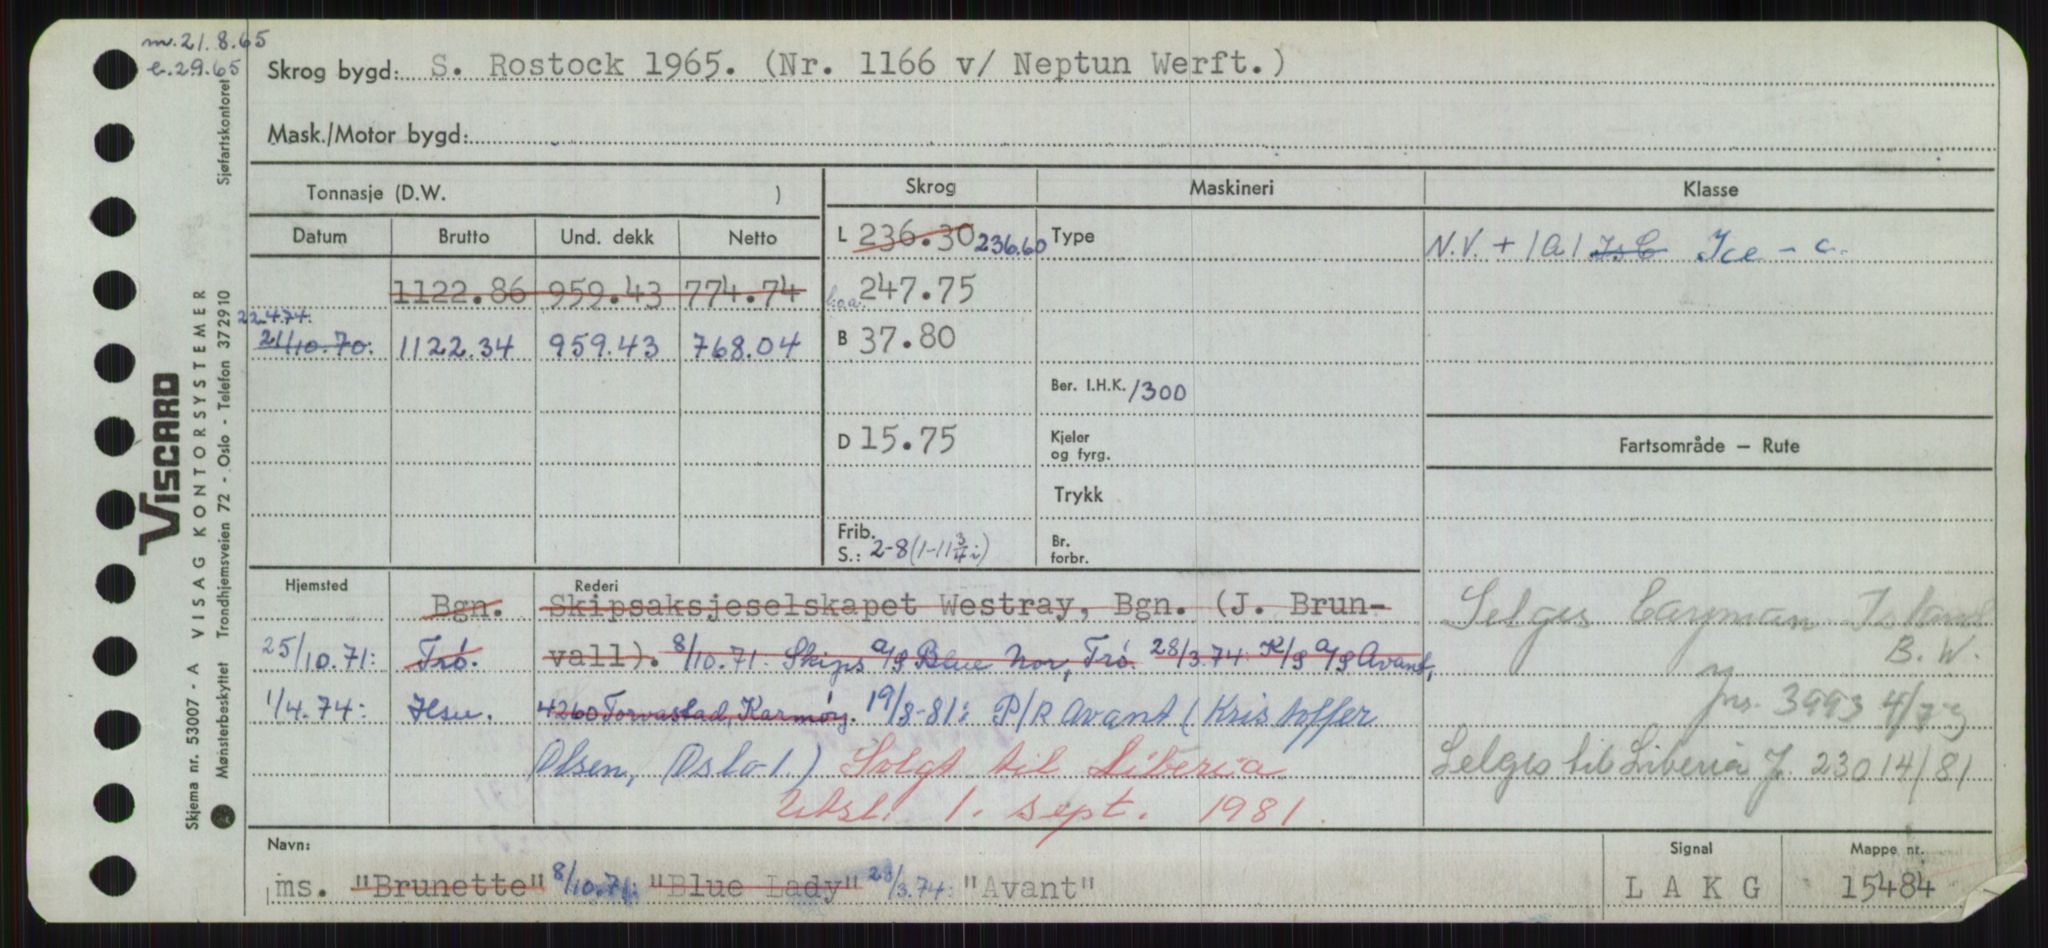 m. 21.8.65
e. 2.9.65
Skrog bygd: S. Rostock 1965. (Nr. 1166 v/ Neptun Werft.)
Mask./Motor bygd:
Tonnasje (D.W. )
Skrog
Maskineri
Klasse
Datum Brutto Und. dekk Netto
L 236.30 236.60
Type
N.V. + 1A1 Is C Ice - c.
1122.86 959.43 774.74
l.o.a. 247.75
22.4.74.
21/10.70. 1122.34 959.43 768.04
B 37.80
Ber. I.H.K. 1300
D 15.75
Kjeler
og fyrg.
Fartsområde — Rute
Trykk
Frib.
S.: 2-8 (1-11 3/4 i)
Br.
forbr.
Hjemsted
Rederi
Bgn. Skipsaksjeselskapet Westray, Bgn. (J. Brun-
25/10.71: Trø. vall). 8/10.71: Skips a/s Blue Nor, Trø. 28/3.74: K/S a/s Avant,
1/4.74: Hsu. 4260 Torvastad, Karmøy. 19/8-81: P/R Avant (Kristoffer
Olsen, Oslo 1.) Solgt til Liberia
Utsl. 1. sept. 1981.
Selges Cayman Island
B.W.
Jnr. 3993 4/79
Selges til Liberia J. 23014/81
Navn:
ms. "Brunette" 8/10.71: "Blue Lady" 28/3.74: "Avant"
Signal
L A K G
Mappe nr.
15484
Skjema nr. 53007 - A VISAG KONTORSYSTEMER
Viscard
Mønsterbeskyttet Trondhjemsveien 72 - Oslo - Telefon 372910 Sjøfartskontoret